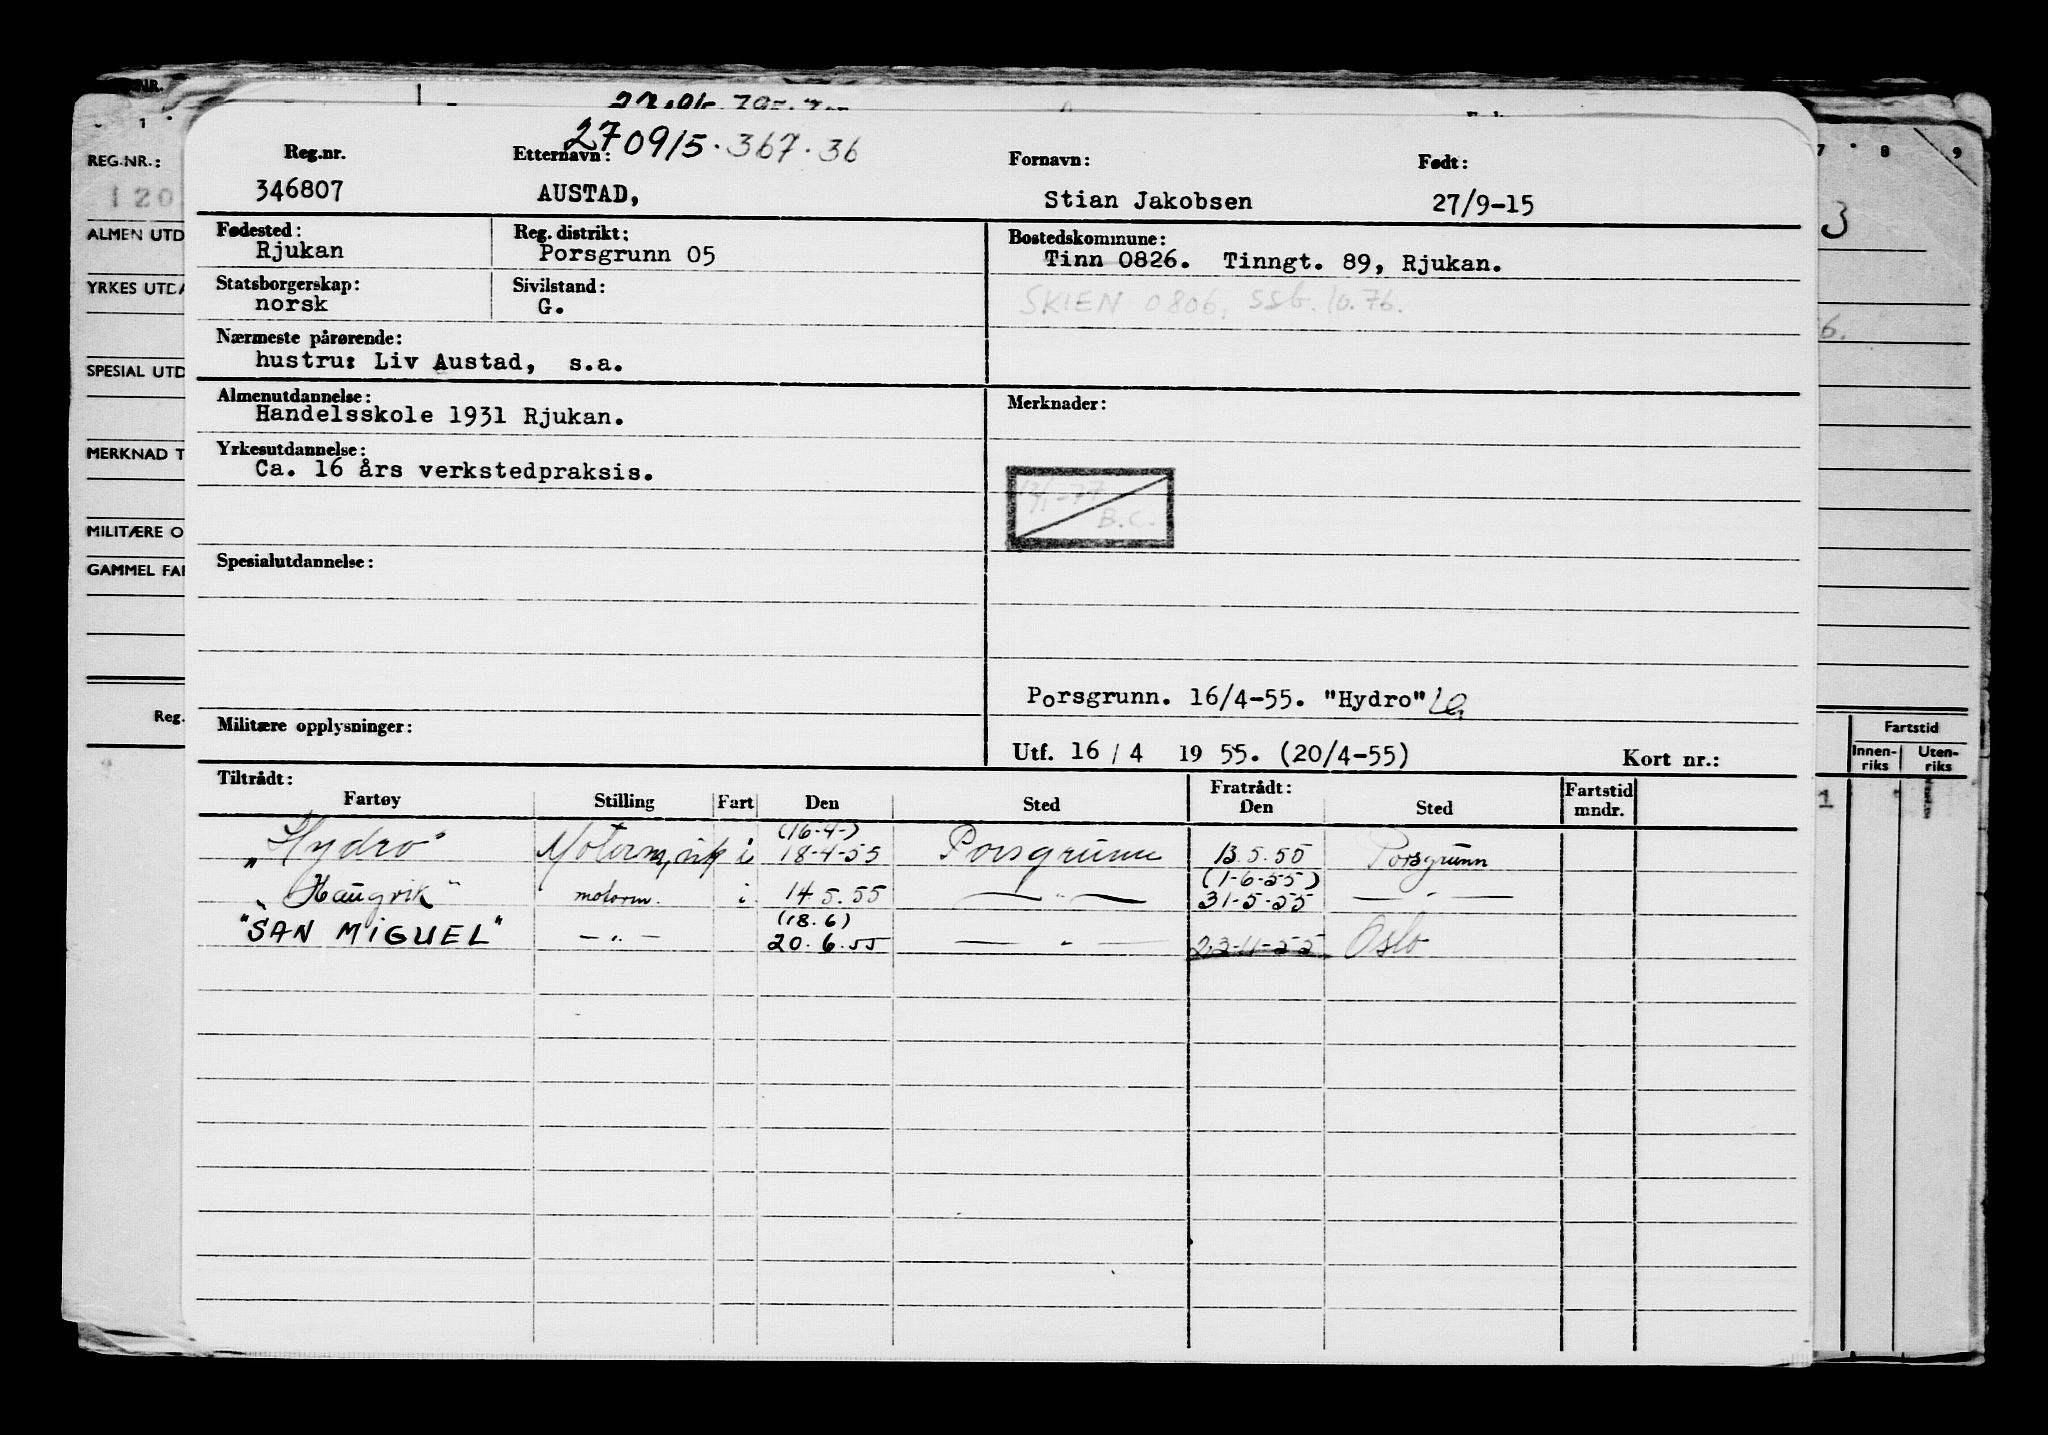 270915.367.36
Reg.nr. Etternavn: Fornavn: Født:
346807 AUSTAD, Stian Jakobsen 27/9-15
Fødested: Reg. distrikt: Bostedskommune:
Rjukan Porsgrunn 05 Tinn 0826. Tinngt. 89, Rjukan.
Statsborgerskap: Sivilstand:
norsk G. SKIEN 0806, SSB. 10.76.
Nærmeste pårørende:
hustru: Liv Austad, s.a.
Almenutdannelse: Merknader:
Handelsskole 1931 Rjukan.
Yrkesutdannelse:
Ca. 16 års verkstedpraksis.
B.C.
Spesialutdannelse:
Porsgrunn. 16/4-55. "Hydro"
Militære opplysninger:
Utf. 16 / 4 1955. (20/4-55) Kort nr.:
Tiltrådt: Fratrådt: Fartstid
Fartøy Stilling Fart Den Sted Den Sted mndr.
(16-4-)
„Hydro" i 18-4-55 Porsgrunn 13.5.55 Porsgrunn
(1-6-55)
„Haugvik" motorm. i 14.5.55 — " — 31-5-55 — " —
(18.6)
"SAN MIGUEL" — " — 20.6.55 — " — 23-11-55 Oslo
NR.
1
REG.NR.:
120
ALMEN UTD
YRKES UTDA
SPESIAL UTD
MERKNAD T
MILITÆRE O
GAMMEL FAR
Reg.
7 8 9
3
6.
Fartstid
Innen-riks Uten-riks
1